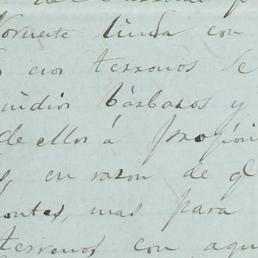 Noroeste linda con
terrenos se
indios bárbaros y
de ellos á propósi
, en razon de q
montes, mas para
terrenos con aqu